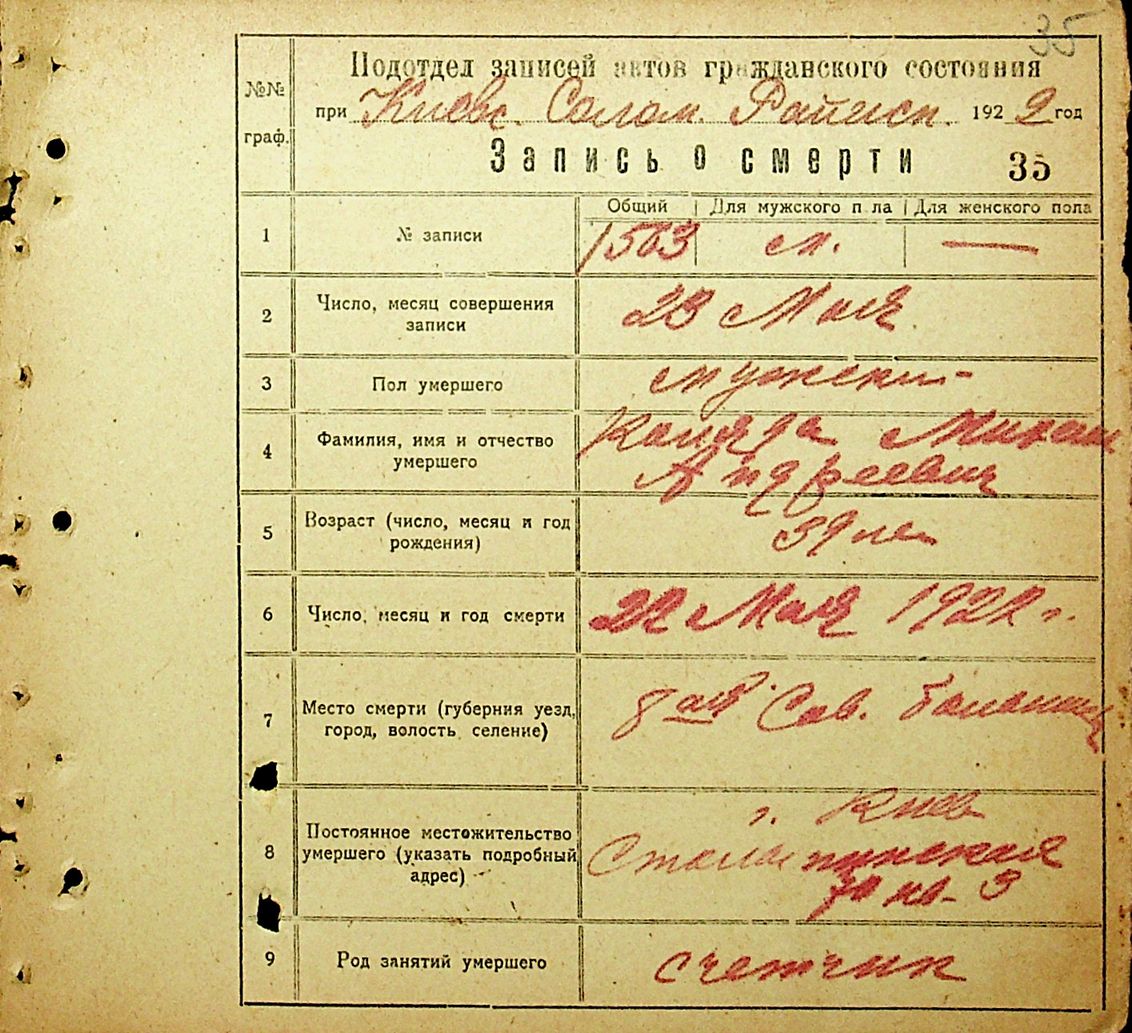 35
Подотдел записей актов гражданского состояния
№№ граф.
при Киевс. Солом. Райисп. 1922 год
Запись о смерти 35
Общий | Для мужского пола | Для женского пола
1 № записи 1503 м. —
2 Число, месяц совершения записи 23 Мая
3 Пол умершего мужской
4 Фамилия, имя и отчество умершего Коляда Михаил
Андреевич
5 Возраст (число, месяц и год рождения) 39 лет
6 Число, месяц и год смерти 22 Мая 1922 г.
7 Место смерти (губерния уезд, город, волость селение) 8ая Сов. больница
8 Постоянное местожительство умершего (указать подробный адрес) г. Киев
Столыпинская
70 кв. 3
9 Род занятий умершего счетчик